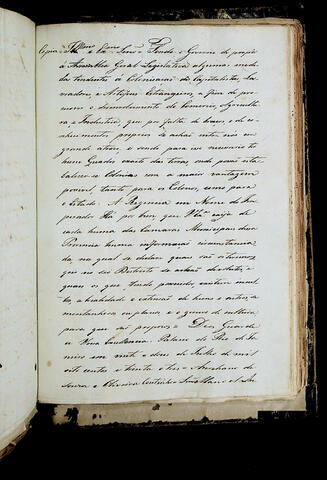 Copia Illmo e Exmo Senr = Tendo o Governo de propor
à Assembléa Geral Legislativa algumas medi-
das tendentes á Colonisação de Capitalistas, La-
vradores, e Artifices Estrangeiros, a fim de pro-
mover o desenvolvimento do Comercio, Agricultura
e Industria, que por falta de braços, e de co-
nhecimentos proprios se achão entre nós em
grande atraso, e sendo para isso necessario te
hum Quadro exacto das terras, onde possão esta
belecer-se Colonias com a maior vantagem
possivel, tanto para os Colonos, como para
o Estado: A Regencia em Nome do Im-
perador Ha por bem, que VEa exija de
cada huma das Camaras Municipaes dessa
Provincia huma informação circunstancia-
da, na qual se declare quaes são os terrenos,
que no seu Districto se achão devolutos, e
quaes os que, tendo possuidos, existem incultos,
a qualidade e extenção de huns e outros, se
montanhosos, ou planos, e o genero de cultura
para que são proprios. = Deos Guarde
a Vossa Excellencia. Palacio do Rio de Ja-
neiro em vinte e dous de Julho de mil
oito centos e trinta e tres = Aureliano de
Souza e Oliveira Coutinho =